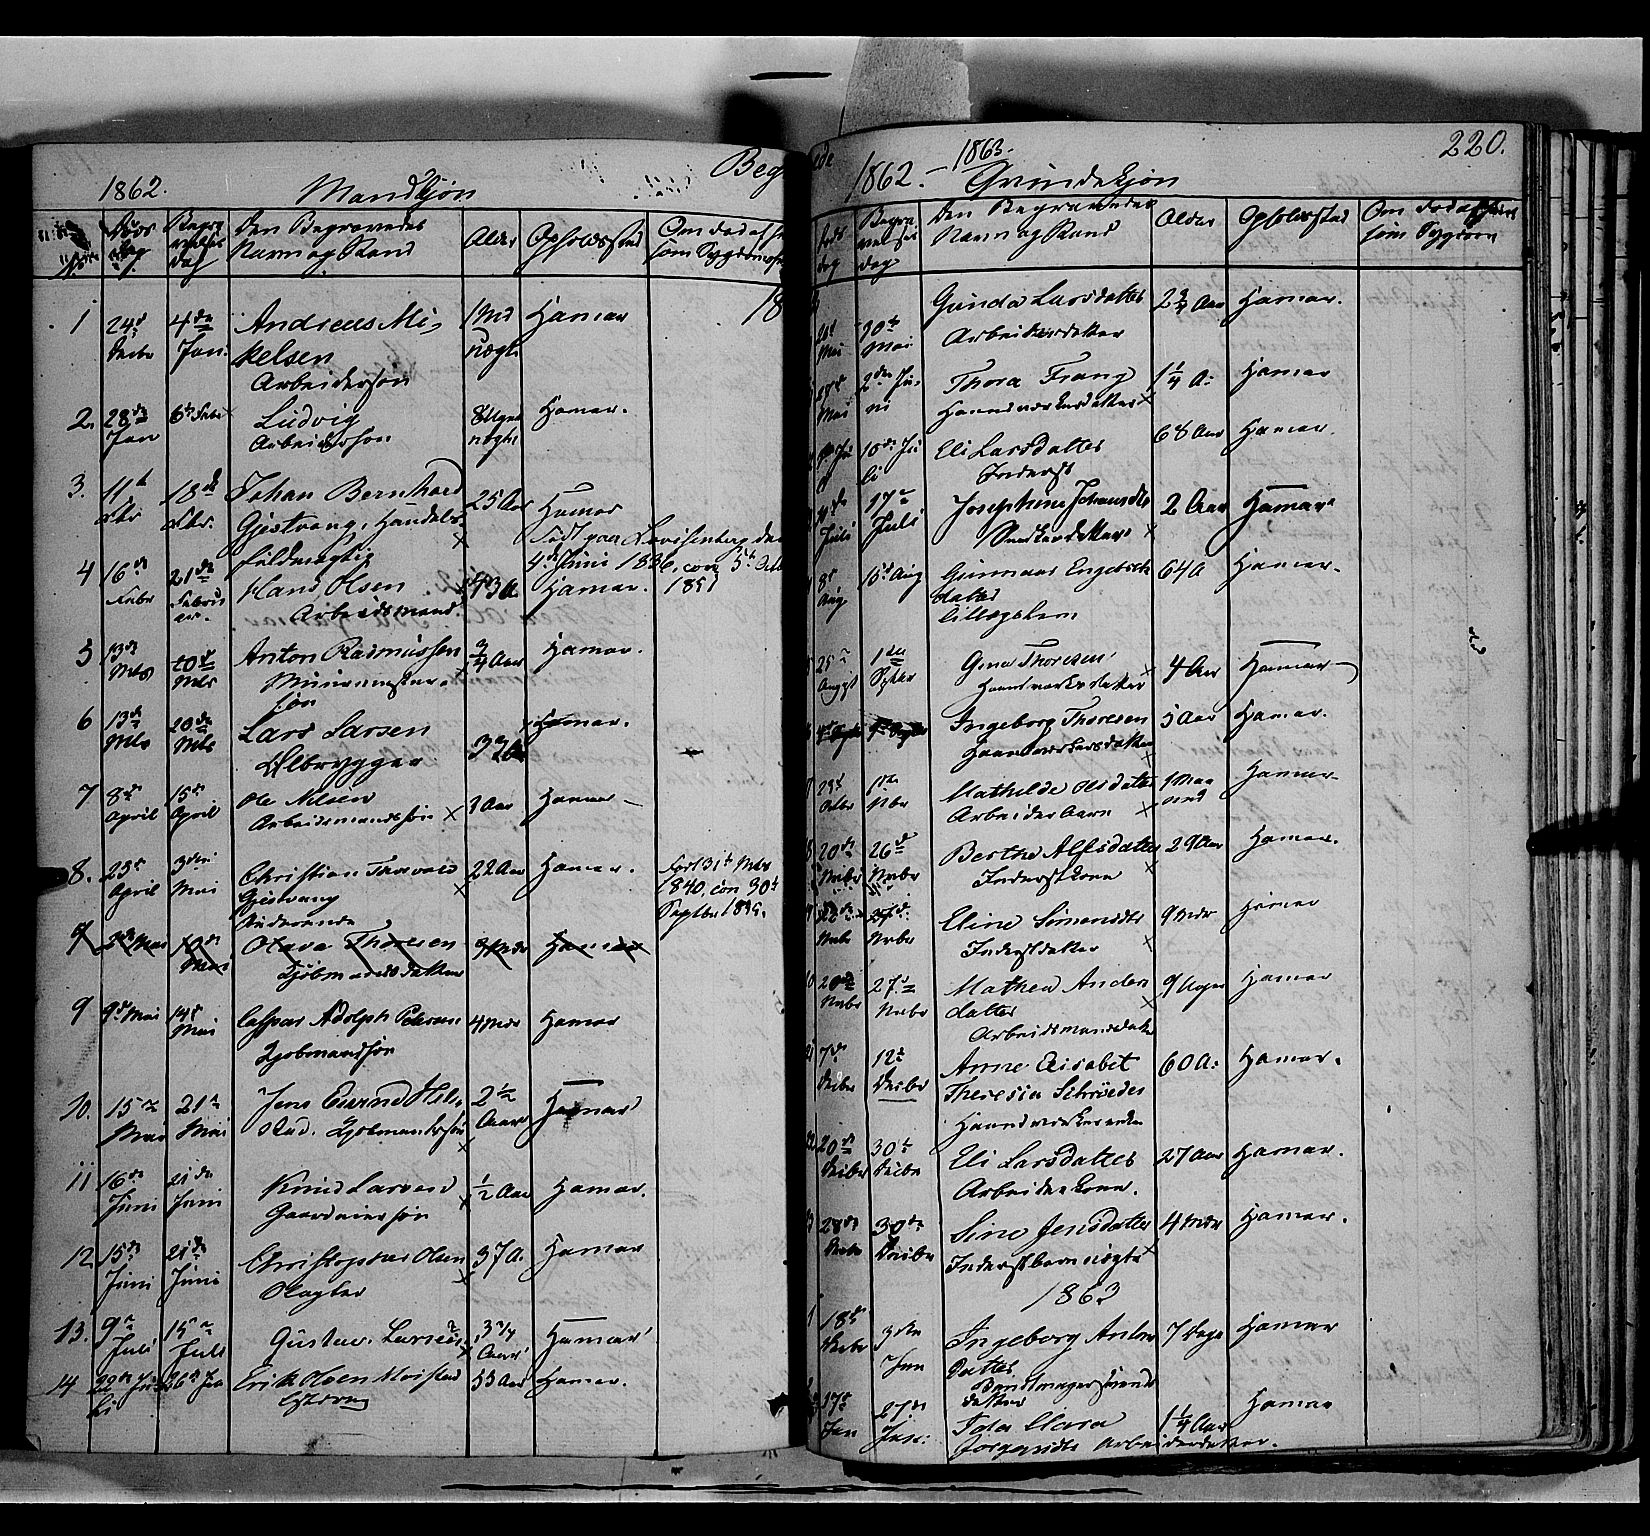 1862.
Mandkjøn
Beg
No
Døds dag
Begravelses dag
Den Begravedes Navn og Stand
Alder
Opholdssted
Om død af
som Sygdoms
1 24d Decbr 4de Jan. Andreas Mi-
kelsen
Arbeiderson
1 Md
nøgti
Hamar
18
2. 28de Jan 6te Febr Ludvig
Arbeiderson
8 Uger
nøgti
Hamar.
3. 11te Febr 18de Febr. Johan Bernhard
Gjestvang, Handels-
fuldmægtig
25 Aar
Hamar
Født paa Lovisenberg den
4de Juni 1836, con 5te Octb
1851
4 16de Febr 21de Februar. Hans Olsen
Arbeidsmand.
43 A.
Hamar.
5 13de Mts 20d Mts Anton Rasmussen
Muurmester-
søn
3/4 Aar
Hamar.
6 13de Mts 20de Mts Lars Larsen
Ølbrygger
Hamar.
7 8de April 15de April Ole Nilsen
Arbeidsmandssøn x
3 Aar
Hamar
8. 25 April 3die Mai Christian Thorvald
Gjestvang
22 Aar
Hamar.
Født 31te Mts
1840, con 30te
Septbr 1855.
9 Mai 10de Mai Olava Thoresen
Kjøbmandsdatter
9 Mdr
Hamar
9 9d Mai 14d Mai Caspar Adolph Petersen
Kjøbmandssøn
4 Mdr
Hamar
10. 15de Mai 21de Mai Jens Eivind Hel-
stad. Kjøbmandssøn
2 1/2
Aar
Hamar
11 16de Juni 21de Juni Knud Larsen
Gaardeiersøn
1/2 Aar
Hamar.
12 15de Juni 21de Juni Christopher Olsen
Slagter
37 A.
Hamar
13. 9de Juli 15de Juli Gustav Larsen
3 3/4
Aar
Hamar
14 22de Juli 26de Jul Erik Olsen Moistad
53 Aar
Hamar.
220.
1862. – 1863.
Qvindekjøn
Døds dag
Begravelses dag
Den Begravedes Navn og Stand
Alder
Opholdssted
Om død af
som Sygdom
Mai 20de Mai Gunda Larsdatter
Arbeiderdatter
2 3/4 Aar
Hamar.
27d Mai 2den Juni Thora Frang
Haandværkerdatter x
1 1/4 A.
Hamar
10de Juli Eli Larsdatter
Inderst
68 Aar
Hamar.
Juli 17de Juli Josephine Johansdtr
Snedkerdatter
2 Aar
Hamar
8de Aug 15d Aug Gunnaar Engebrets
datter
Lillegshem
64 A
Hamar.
25de August 1ste Septbr Gina Thoresen
Haandværkerdatter
4 Aar
Hamar
Ingeborg Thoresen
Haandværkersdatter
5 Aar
Hamar.
23d Octbr 1ste Nbr Mathilde Olsdatter
Arbeiderbarn x
1 Maa
ned
Hamar
20de Novbr 26de Novbr Berthe Alfsdatter
Inderstkone x
29 Aar
Hamar.
22de Novbr 27de Novbr Eline Simensdtr
Inderstdatter x
9 Mdr
Hamar
20de Novbr 27de Novbr Mathea Anders
datter
Arbeidsmandsdatter
9 Uger
Hamar
7de Decbr 12te Decbr Anne Elisabet
Theresia Schrøder
Haandværkerenke
60 A.
Hamar.
20de Decbr 30te Decbr Eli Larsdatter
Arbeiderkone.
27 Aar
Hamar.
28de Novbr 30te Decbr Sine Jensdatter
Inderstbarn nøgti x
4 Mdr
Hamar.
1863
1 18de Decbr 3die Jan Ingeborg Anton
Datter
datter
7 Dage
Hamar
17de Jan 27de Jan. Ida Clara
Jørgensdtr Arbeiderdatter.
1 1/4 Aar
Hamar